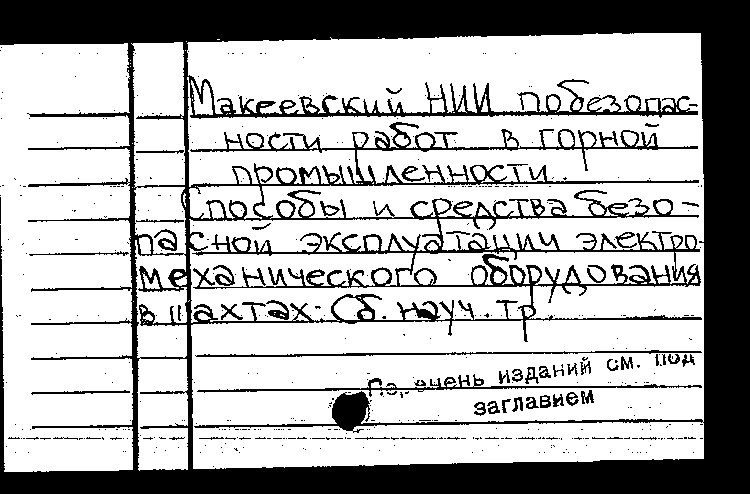 Макеевский НИИ по безопас-
ности работ в горной
промышленности.
Способы и средства безо-
пасной эксплуатации электро-
механического оборудования
в шахтах: Сб. науч. тр.
Перечень изданий см. под
заглавием